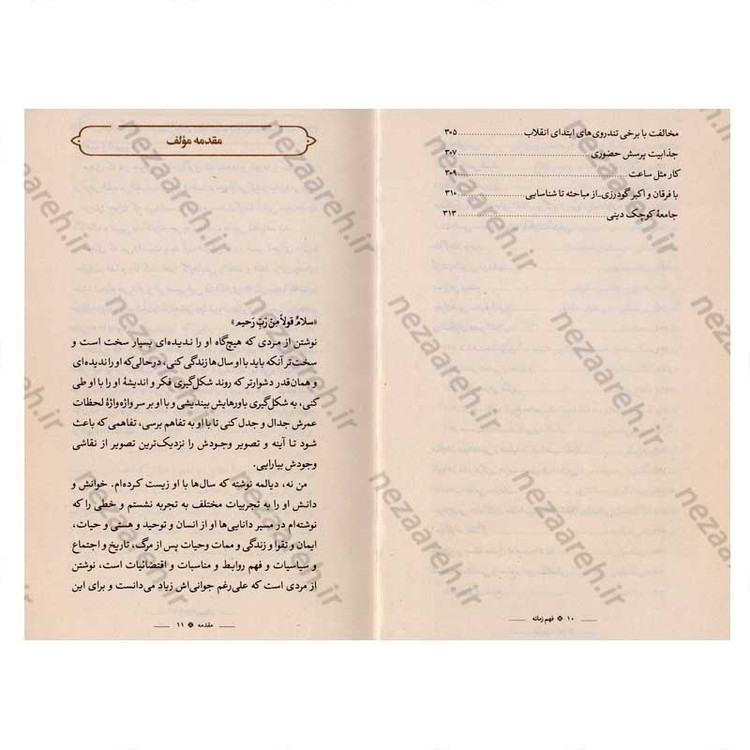 مخالفت با برخی تندروی‌های ابتدای انقلاب ........ ۳۰۵
جذابیت پرسش حضوری ........ ۳۰۷
کار مثل ساعت ........ ۳۰۹
با فرقان و اکبر گودرزی_از مباحثه تا شناسایی ........ ۳۱۰
جامعهٔ کوچک دینی ........ ۳۱۳
۱۰ فهم زمانه
مقدمه مؤلف
«سلامٌ قولاً مِن رَبٍّ رَحیم»
نوشتن از مردی که هیچ‌گاه او را ندیده‌ای بسیار سخت است و
سخت‌تر آنکه باید با او سال‌ها زندگی کنی، درحالی‌که او را ندیده‌ای
و همان‌قدر دشوارتر که روند شکل‌گیری فکر و اندیشهٔ او را با او طی
کنی، به شکل‌گیری باورهایش بیندیشی و با او بر سر واژه‌واژهٔ لحظات
عمرش جدال و جدل کنی تا با او به تفاهم برسی، تفاهمی که باعث
شود تا آینه و تصویر وجودش را نزدیک‌ترین تصویر از نقاشی
وجودش بیارایی.
من نه، دیالمه نوشته که سال‌ها با او زیست کرده‌ام. خوانش و
دانش او را به تجربیات مختلف به تجربه نشستم و خطی را که
نوشته‌ام در مسیر دانایی‌ها او از انسان و توحید و هستی و حیات،
ایمان و تقوا و زندگی و ممات وحیات پس از مرگ، تاریخ و اجتماع
و سیاسیات و فهم روابط و مناسبات و اقتضائیات است، نوشتن
از مردی است که علی‌رغم جوانی‌اش زیاد می‌دانست و برای این
مقدمه ۱۱
nezaareh.ir